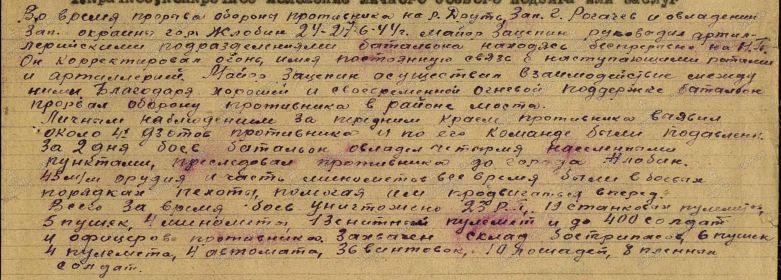 Краткое конкретное изложение личного боевого подвига или заслуг
Во время прорыва обороны противника на р. Друть, Зап. г. Рогачев и овладении
Зап. окраины гор. Жлобин 24-27-6-44г. майор Зацепин руководил артил-
лерийскими подразделениями батальона находясь беспрерывно на Н.П.
Он корректировал огонь, имея постоянную связь с наступающими ротами
и артиллерией. Майор Зацепин осуществлял взаимодействие между
ними. Благодаря хорошей и своевременной огневой поддержке батальон
прорвал оборону противника в районе моста.
Личным наблюдением за передним краем противника выявил
около 4х дзотов противника и по его команде были подавлены.
За 2 дня боев батальон овладел четырмя населенными
пунктами, преследовал противника до города Жлобин.
45м/м орудия и часть минометов все время были в боевых
порядках пехоты, помогая им продвигаться вперед.
Всего за время боев уничтожено 23 Р.П., 19 станковых пулеметов,
5 пушек, 4 миномета, 1 зенитный пулемет и до 400 солдат
и офицеров противника. Захвачен склад боеприпасов, 6 пушек
4 пулемета, 4 автомата, 36 винтовок, 10 лошадей, 8 пленных
солдат.